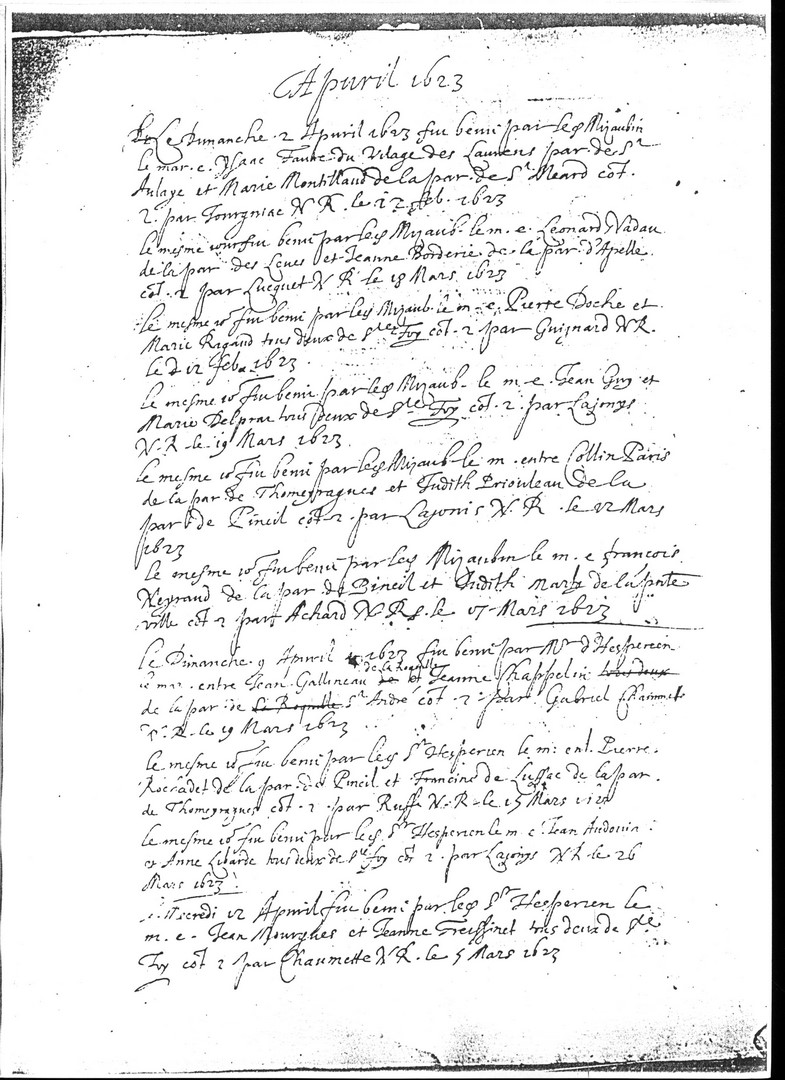 Apuril 1623
Le Dimanche 2 Apuril 1623 fut beni par led Sr Mizaubin
le mar. e. Ysaac Faure du Vilage des Laurens par. de St
Aulaye et Marie Montillaud de la par. de St Meard cot.
2. par Tourgniac N R. le 12 feb. 1623
le mesme jour fut beni par led Sr Mizaub. le m. e. Leonard Nadau
de la par des Leues et Jeanne Borderie de la par d'Apelle.
cot. 2 par Lucquet N R le 18 Mars 1623
le mesme jor fut beni par led Sr Mizaub. le m. e. Pierre Doche et
Marie Rigaud tous deux de Ste Foy cot. 2 par Guignard N R.
le 12 feb. 1623
le mesme jor fut beni par led Sr Mizaub. le m. e. Jean Guy et
Marie Delprat tous deux de Ste Foy cot. 2. par Lajonys
N. R le 19 Mars 1623
le mesme jor fut beni par led Sr Mizaub. le m. entre Collin Paris
de la par. de Thomeyragues et Judith Priouleau de la
par de Pineil cot. 2. par Lajonis N. R. le 22 Mars
1623
le mesme jor fut beni par led Sr Mizaubin le m. e. francois
Neyraud de la par de Pineil et Judith de la pnte
ville cot 2 par Achard N R. le 07 Mars 1623
le Dimanche 9 Apuril 1623 fut beni par Mr d'Hesperien
le mar. entre Jean Gallineau de la Roquille et Jeanne Chappelin tous deux
de la par. de la Roquille St André cot. 2 par Gabriel
N. R. le 19 Mars 1623
le mesme jor fut beni par led Sr Hesperien le m. ent. Pierre
Rocradet de la par. de Pineil et Francine de Lussac de la par.
de Thomeyragues cot. 2. par Ruffe N. R. le 15 Mars
le mesme jor fut beni par led Sr Hesperien le m. e. Jean Audouin
et Anne Libarde tous deux de Ste foy cot 2. par Lajonys N R le 26
Mars 1623
le Mercredi 12 Apuril fut beni par led Sr Hesperien le
m. e. Jean Mourgues et Jeanne Freissinet tous deux de Ste
Foy cot 2 par Chaumette N R. le 5 Mars 1623